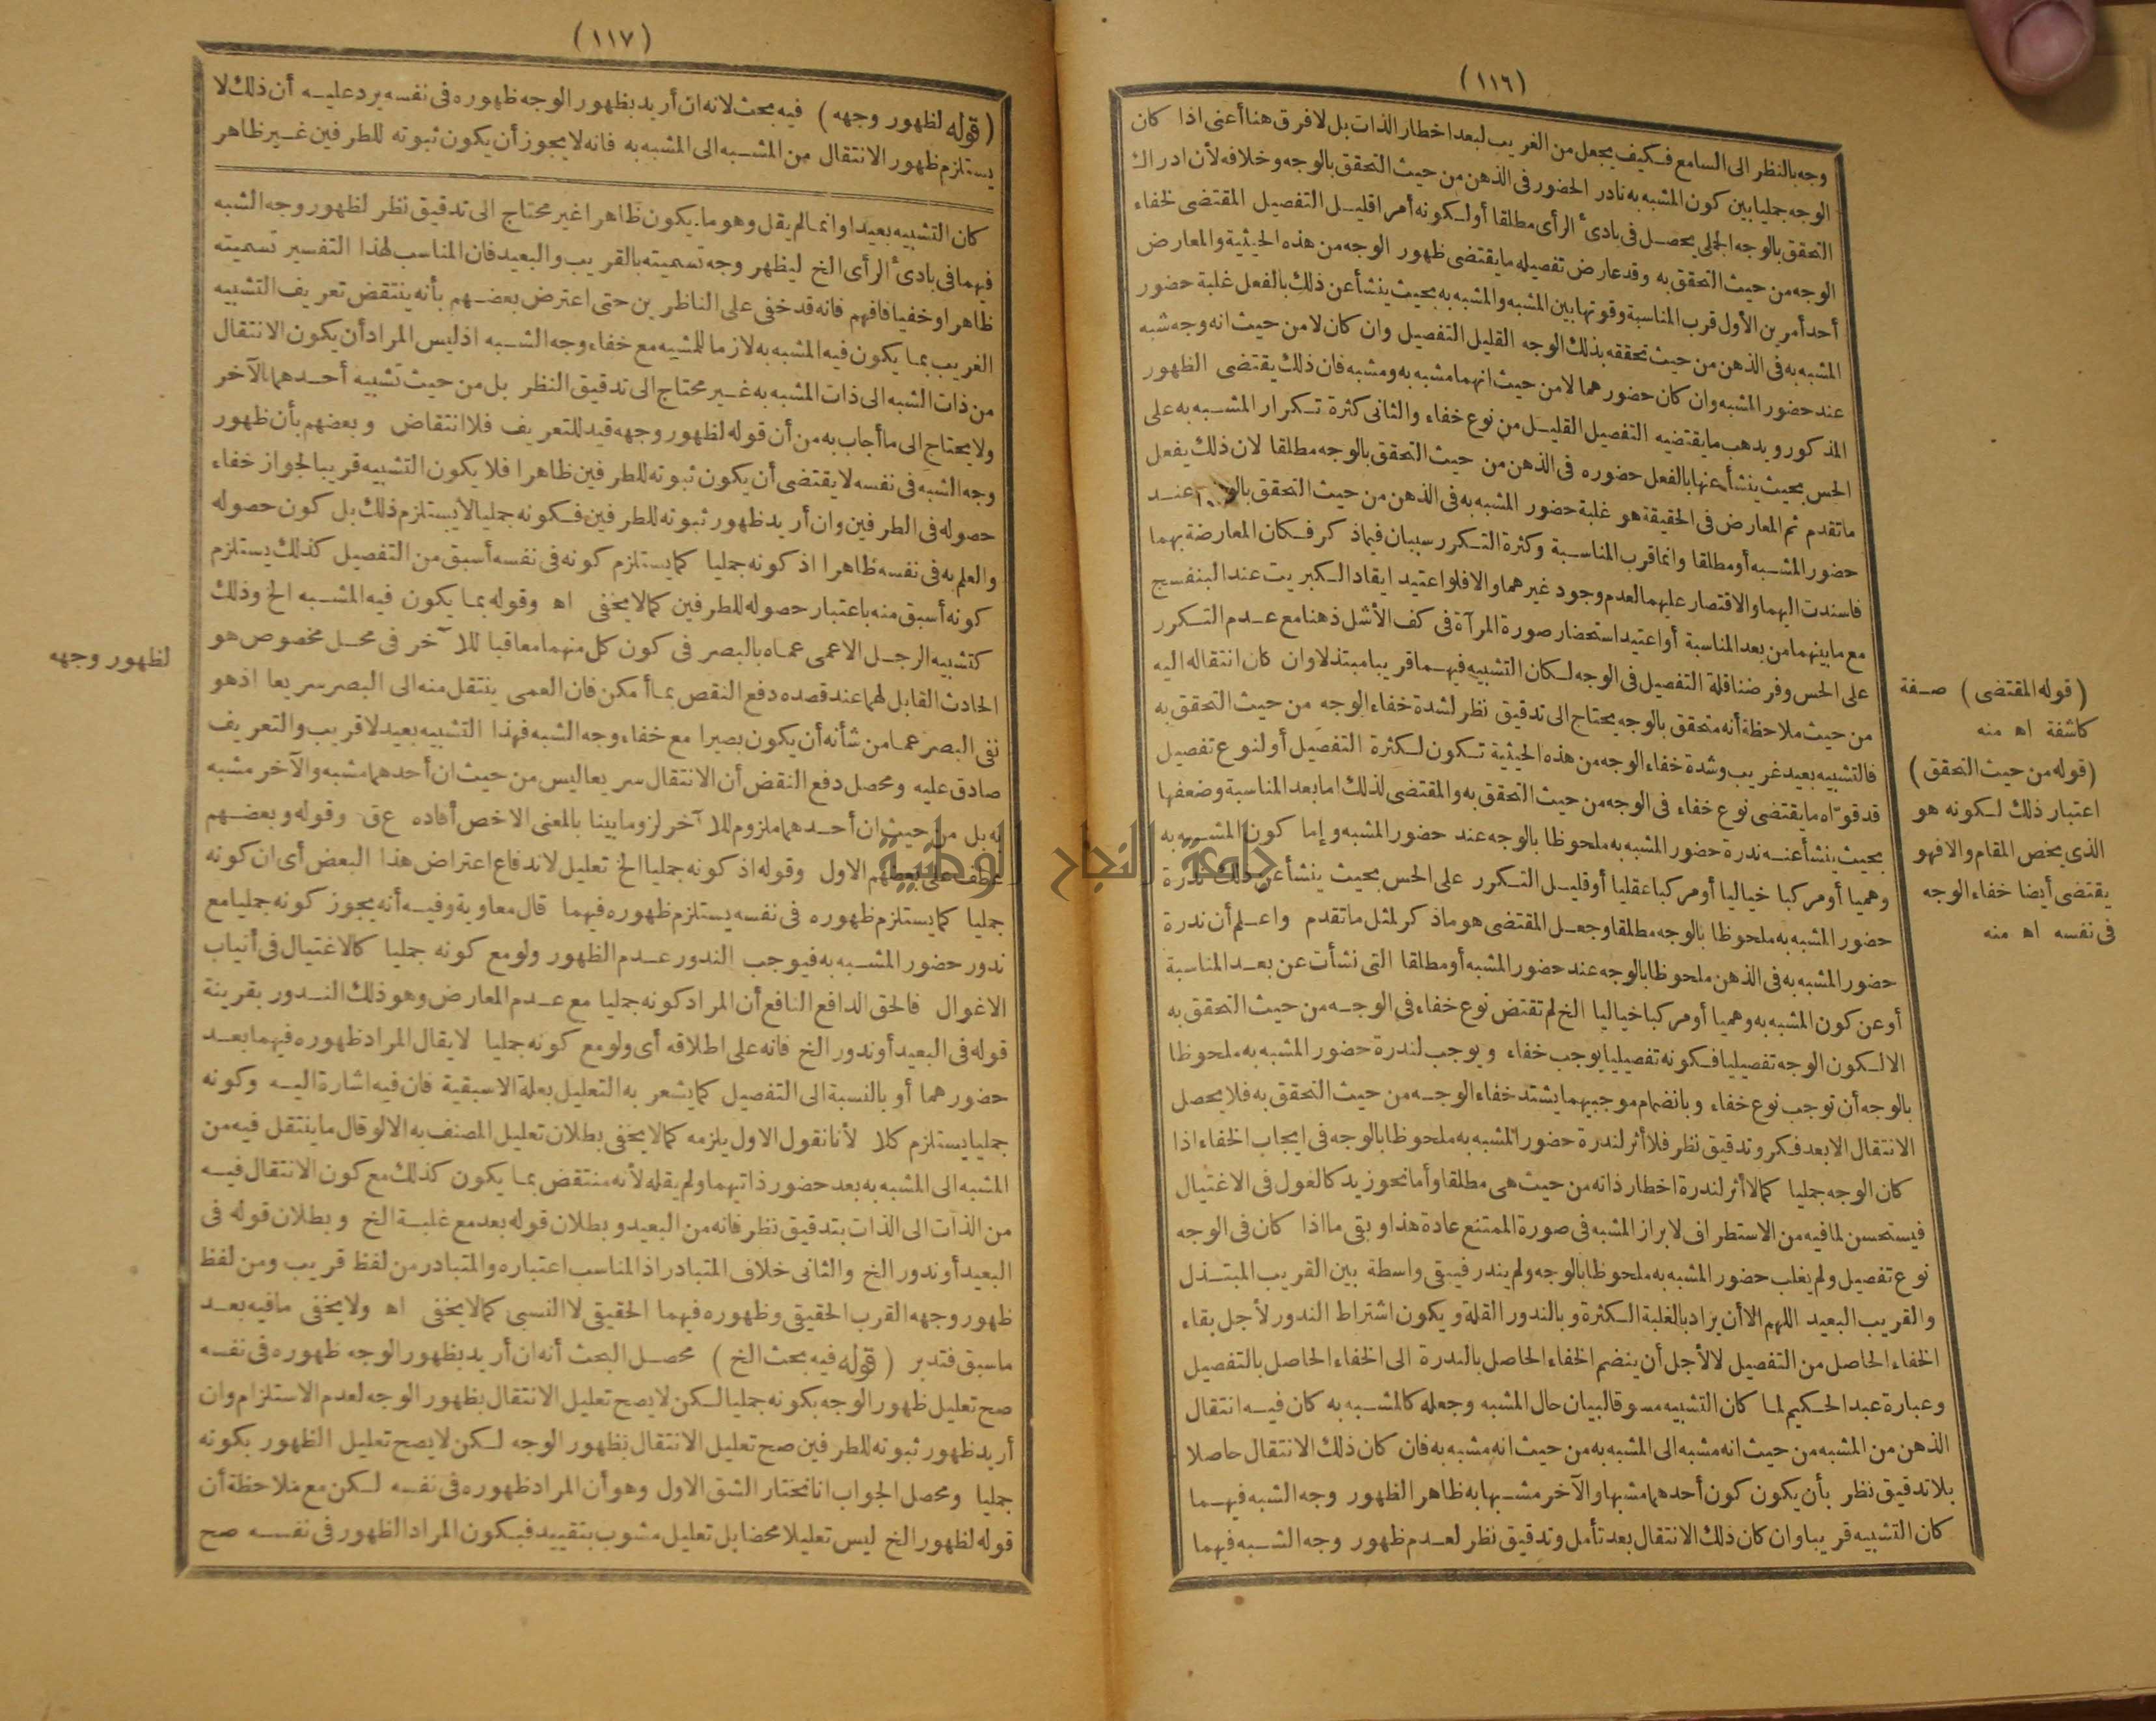 (١١٦)
وجه بالنظر الى السامع فكيف يجعل من الغريب لبعد اخطار الذات بل لا فرق هنا أعنى اذا كان
الوجه جمليا بين كون المشبه به نادر الحضور فى الذهن من حيث التحقق بالوجه وخلافه لأن ادراك
التحقق بالوجه الجملى يحصل فى بادئ الرأى مطلقا أولكونه أمرا قليل التفصيل المقتضى لخفاء
الوجه من حيث التحقق به وقد عارض تفصيله ما يقتضى ظهور الوجه من هذه الحيثية والمعارض
أحد أمرين الأول قرب المناسبة وقوتها بين المشبه والمشبه به بحيث ينشأ عن ذلك بالفعل غلبة حضور
المشبه به فى الذهن من حيث تحققه بذلك الوجه القليل التفصيل وان كان لا من حيث انه وجه شبه
عند حضور المشبه وان كان حضورهما لا من حيث انهما مشبه به ومشبه فان ذلك يقتضى الظهور
المذكور ويدهب ما يقتضيه التفصيل القليل من نوع خفاء والثانى كثرة تكرار المشبه به على
الحس بحيث ينشأ عنها بالفعل حضوره فى الذهن من حيث التحقق بالوجه مطلقا لان ذلك يفعل
ما تقدم ثم المعارض فى الحقيقة هو غلبة حضور المشبه به فى الذهن من حيث التحقق عند
حضور المشبه أو مطلقا وانما قرب المناسبة وكثرة التكرر سببان فيما ذكر فكان المعارضة بهما
فاسندت اليهما والاقتصار عليهما لعدم وجود غيرهما والا فلو اعتيد ايقاد الكبريت عند البنفسج
مع ما بينهما من بعد المناسبة أو اعتيد استحضار صورة المرآة فى كف الأشل ذهنا مع عدم التكرر
على الحس وفرضنا قلة التفصيل فى الوجه لكان التشبيه فيهما قريبا مبتذلا وان كان انتقاله اليه
من حيث ملاحظة أنه متحقق بالوجه يحتاج الى تدقيق نظر لشدة خفاء الوجه من حيث التحقق به
فالتشبيه بعيد غريب وشدة خفاء الوجه من هذه الحيثية تكون لكثرة التفصيل أو لنوع تفصيل
قد قوّاه ما يقتضى نوع خفاء فى الوجه من حيث التحقق به والمقتضى لذلك اما بعد المناسبة وضعفها
بحيث ينشأ عنه ندرة حضور المشبه به ملحوظا بالوجه عند حضور المشبه وإما كون المشبه به
وهميا أو مركبا خياليا أو مركبا عقليا أو قليل التكرر على الحس بحيث ينشأ عن ذلك ندرة
حضور المشبه به ملحوظا بالوجه مطلقا وجعل المقتضى هو ماذكر لمثل ما تقدم واعلم أن ندرة
حضور المشبه به فى الذهن ملحوظا بالوجه عند حضور المشبه أو مطلقا التى نشأت عن بعد المناسبة
أوعن كون المشبه به وهميا أو مركبا خياليا الخ لم تقتض نوع خفاء فى الوجه من حيث التحقق به
الا لكون الوجه تفصيليا فكونه تفصيليا يوجب خفاء ويوجب لندرة حضور المشبه به ملحوظا
بالوجه أن توجب نوع خفاء وبانضمام موجبيهما يشتد خفاء الوجه من حيث التحقق به فلا يحصل
الانتقال الا بعد فكر وتدقيق نظر فلا أثر لندرة حضور المشبه به ملحوظا بالوجه فى ايجاب الخفاء اذا
كان الوجه جمليا كما لا أثر لندرة اخطار ذاته من حيث هى مطلقا وأما نحو زيد كالغول فى الاغتيال
فيستحسن لما فيه من الاستطراف لابراز المشبه فى صورة الممتنع عادة هذا وبقى ما اذا كان فى الوجه
نوع تفصيل ولم يغلب حضور المشبه به ملحوظا بالوجه ولم يندر فيبقى واسطة بين القريب المبتذل
والقريب البعيد اللهم الا أن يراد بالغلبة الكثرة وبالندور القلة ويكون اشتراط الندور لأجل بقاء
الخفاء الحاصل من التفصيل لا لأجل أن ينضم الخفاء الحاصل بالندرة الى الخفاء الحاصل بالتفصيل
وعبارة عبد الحكيم لما كان التشبيه مسوقا لبيان حال المشبه وجعله كالمشبه به كان فيه انتقال
الذهن من المشبه من حيث انه مشبه الى المشبه به من حيث انه مشبه به فان كان ذلك الانتقال حاصلا
بلا تدقيق نظر بأن يكون كون أحدهما مشبها والآخر مشبها به ظاهر الظهور وجه الشبه فيهما
كان التشبيه قريبا وان كان ذلك الانتقال بعد تأمل وتدقيق نظر لعدم ظهور وجه الشبه فيهما
(قوله المقتضى) صفة
كاشفة اه منه
(قوله من حيث التحقق)
اعتبار ذلك لكونه هو
الذى يخص المقام والا فهو
يقتضى أيضا خفاء الوجه
فى نفسه اه منه
(١١٧)
(قوله لظهور وجهه) فيه بحث لانه ان أريد بظهور الوجه ظهوره فى نفسه يرد عليه أن ذلك لا
يستلزم ظهور الانتقال من المشبه الى المشبه به فانه لا يجوز أن يكون ثبوته للطرفين غير ظاهر
كان التشبيه بعيدا وانما لم يقل وهو ما يكون ظاهرا غير محتاج الى تدقيق نظر لظهور وجه الشبه
فيهما فى بادئ الرأى الخ ليظهر وجه تسميته بالقريب والبعيد فان المناسب لهذا التفسير تسميته
ظاهرا وخفيا فافهم فانه قد خفى على الناظرين حتى اعترض بعضهم بأنه ينتقض تعريف التشبيه
الغريب بما يكون فيه المشبه به لازما للمشبه مع خفاء وجه الشبه اذ ليس المراد أن يكون الانتقال
من ذات الشبه الى ذات المشبه به غير محتاج الى تدقيق النظر بل من حيث تشبيه أحدهما بالآخر
ولا يحتاج الى ما أجاب به من أن قوله لظهور وجهه قيد للتعريف فلا انتقاض وبعضهم بأن ظهور
وجه الشبه فى نفسه لا يقتضى أن يكون ثبوته للطرفين ظاهرا فلا يكون التشبيه قريبا لجواز خفاء
حصوله فى الطرفين وان أريد ظهور ثبوته للطرفين فكونه جمليا لا يستلزم ذلك بل كون حصوله
والعلم به فى نفسه ظاهرا اذ كونه جمليا كما يستلزم كونه فى نفسه أسبق من التفصيل كذلك يستلزم
كونه أسبق منه باعتبار حصوله للطرفين كما لا يخفى اه وقوله بما يكون فيه المشبه الخ وذلك
كتشبيه الرجل الاعمى عماه بالبصر فى كون كل منهما معاقبا للآخر فى محل مخصوص هو
الحادث القابل لهما عند قصده دفع النقص بما أمكن فان العمى ينتقل منه الى البصر سريعا اذ هو
نفى البصر عما من شأنه أن يكون بصيرا مع خفاء وجه الشبه فهذا التشبيه بعيد لا قريب والتعريف
صادق عليه ومحصل دفع النقض أن الانتقال سريعا ليس من حيث ان أحدهما مشبه والآخر مشبه
به بل من حيث ان أحدهما ملزوم للآخر لزوما بينا بالمعنى الاخص أفاده ع ق وقوله وبعضهم
عطف على بعضهم الاول وقوله اذ كونه جمليا الخ تعليل لاندفاع اعتراض هذا البعض أى ان كونه
جمليا كما يستلزم ظهوره فى نفسه يستلزم ظهوره فيهما قال معاوية وفيه أنه يجوز كونه جمليا مع
ندور حضور المشبه به فيوجب الندور عدم الظهور ولو مع كونه جمليا كالاغتيال فى أنياب
الاغوال فالحق الدافع النافع أن المراد كونه جمليا مع عدم المعارض وهو ذلك الندور بقرينة
قوله فى البعيد أو ندور الخ فانه على اطلاقه أى ولو مع كونه جمليا لا يقال المراد ظهوره فيهما بعد
حضورهما أو بالنسبة الى التفصيل كما يشعر به التعليل بعلة الاسبقية فان فيه اشارة اليه وكونه
جمليا يستلزم كلا لأنا نقول الاول يلزمه كما لا يخفى بطلان تعليل المصنف به الا لو قال ما ينتقل فيه من
المشبه الى المشبه به بعد حضور ذاتيهما ولم يقله لأنه منتقض بما يكون كذلك مع كون الانتقال فيه
من الذات الى الذات بتدقيق نظر فانه من البعيد وبطلان قوله بعد مع غلبة الخ وبطلان قوله فى
البعيد أو ندور الخ والثانى خلاف المتبادر اذ المناسب اعتباره والمتبادر من لفظ قريب ومن لفظ
ظهور وجهه القرب الحقيقى وظهوره فيهما الحقيقى لا النسبى كما لا يخفى اه ولا يخفى ما فيه بعد
ما سبق فتدبر (قوله فيه بحث الخ) محصل البحث أنه ان أريد بظهور الوجه ظهوره فى نفسه
صح تعليل ظهور الوجه بكونه جمليا لكن لا يصح تعليل الانتقال بظهور الوجه لعدم الاستلزام وان
أريد ظهور ثبوته للطرفين صح تعليل الانتقال بظهور الوجه لكن لا يصح تعليل الظهور بكونه
جمليا ومحصل الجواب انا نختار الشق الاول وهو أن المراد ظهوره فى نفسه لكن مع ملاحظة أن
قوله لظهور الخ ليس تعليلا محضا بل تعليل مشوب بتقييد فيكون المراد الظهور فى نفسه صح
لظهور وجهه
جامعة النجاح الوطنية